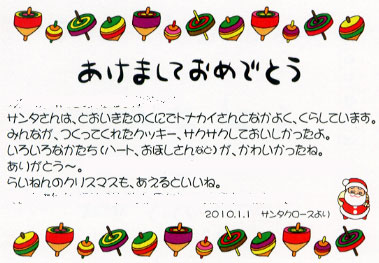 あけましておめでとう
サンタさんは、とおいきたのくにでトナカイさんとなかよく、くらしています。
みんなが、つくってくれたクッキー、サクサクしておいしかったよ。
いろいろなかたち(ハート、おほしさんなど)が、かわいかったね。
ありがとう〜。
らいねんのクリスマスも、あえるといいね。
2010.1.1 サンタクロースより